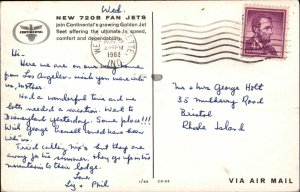 Wed.
CONTINENTAL
NEW 720B FAN JETS
join Continental's growing Golden Jet
fleet offering the ultimate in speed,
comfort and dependability.
PM
1962
4¢
Hi-
Here we are on our way home
from Los Angeles. wish you were with
us,
Had a wonderful time and we
both needed a vacation. Went to
Disneyland yesterday. Some place!!!
Will George Parnell could have been
with us.
Tried calling but they are
away for the summer. They go up in the
mountains to their lodge.
Love
Ly & Phil
Mr & Mrs George Holt
35 Mulberry Road
Bristol
Rhode Island
VIA AIR MAIL